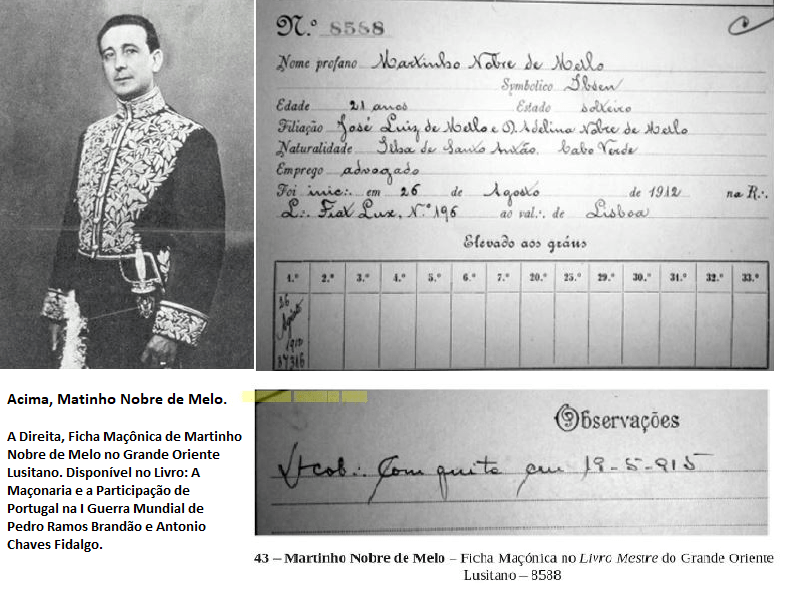 N.º 8588
Nome profano Martinho Nobre de Mello
Symbolico Ibsen
Edade 21 anos Estado solteiro
Filiação José Luiz de Mello e D. Adelina Nobre de Mello
Naturalidade Ilha de Santo Antão, Cabo Verde
Emprego advogado
Foi inic∴ em 26 de Agosto de 1912 na R∴
L∴ Fiat Lux, N.º 196 ao val∴ de Lisboa
Elevado aos gráus
1.º 2.º 3.º 4.º 5.º 6.º 7.º 20.º 25.º 29.º 30.º 31.º 32.º 33.º
26
Agosto
1912
37316
Acima, Matinho Nobre de Melo.
A Direita, Ficha Maçônica de Martinho
Nobre de Melo no Grande Oriente
Lusitano. Disponível no Livro: A
Maçonaria e a Participação de
Portugal na I Guerra Mundial de
Pedro Ramos Brandão e Antonio
Chaves Fidalgo.
Observações
cob∴ Com quite em 19-5-915
43 – Martinho Nobre de Melo – Ficha Maçónica no Livro Mestre do Grande Oriente
Lusitano – 8588